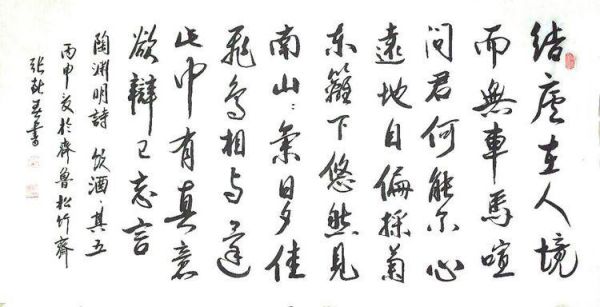 結廬在人境
而無車馬喧
問君何能尔心
遠地自偏採菊
东籬下悠然見
南山〻氣日夕佳
飛鳥相与還
此中有真意
欲辯已忘言
陶渊明詩 饮酒·其五
丙申夏於齊魯松竹齋
张 書